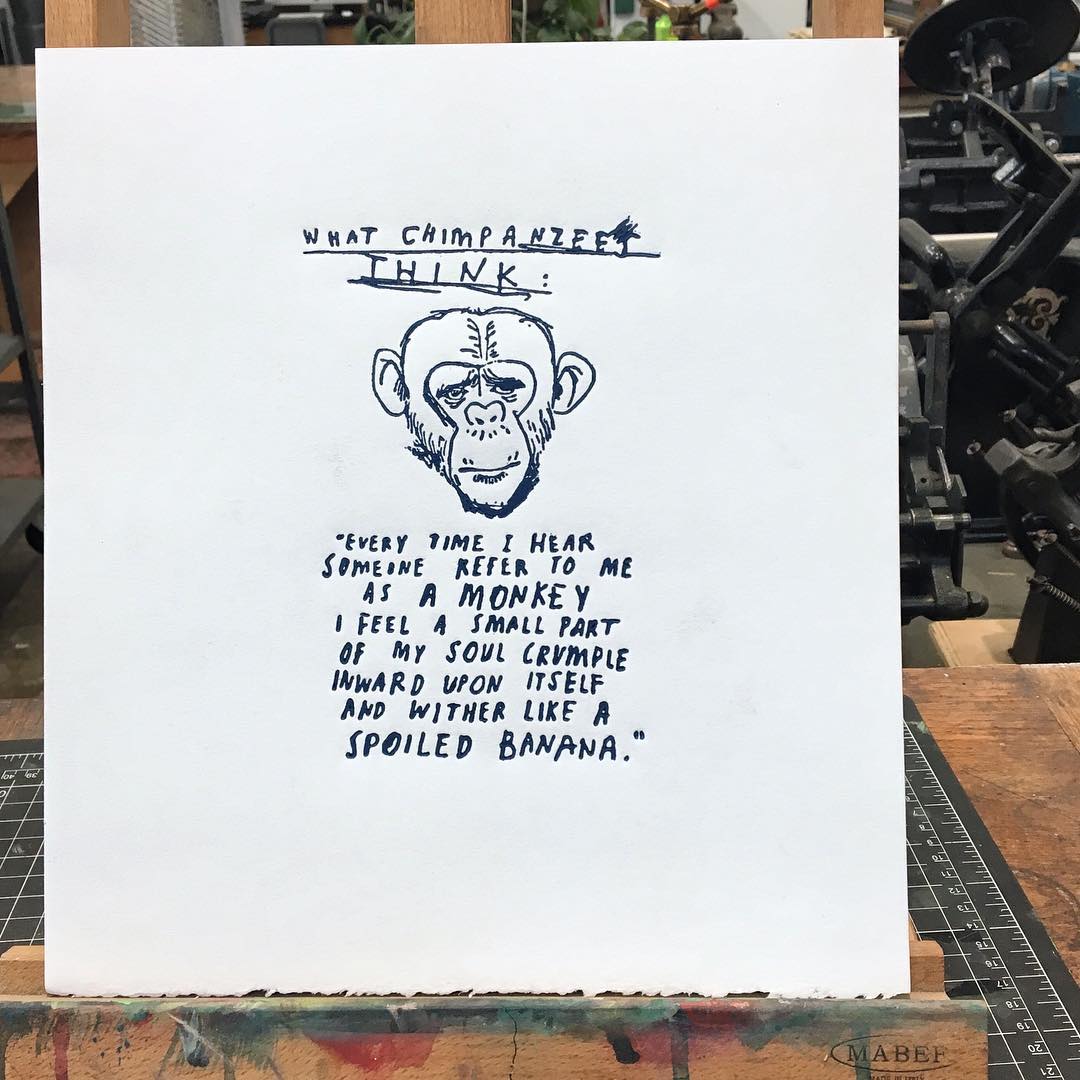 WHAT CHIMPANZEES
THINK:
"EVERY TIME I HEAR
SOMEONE REFER TO ME
AS A MONKEY
I FEEL A SMALL PART
OF MY SOUL CRUMPLE
INWARD UPON ITSELF
AND WITHER LIKE A
SPOILED BANANA."
MABEF